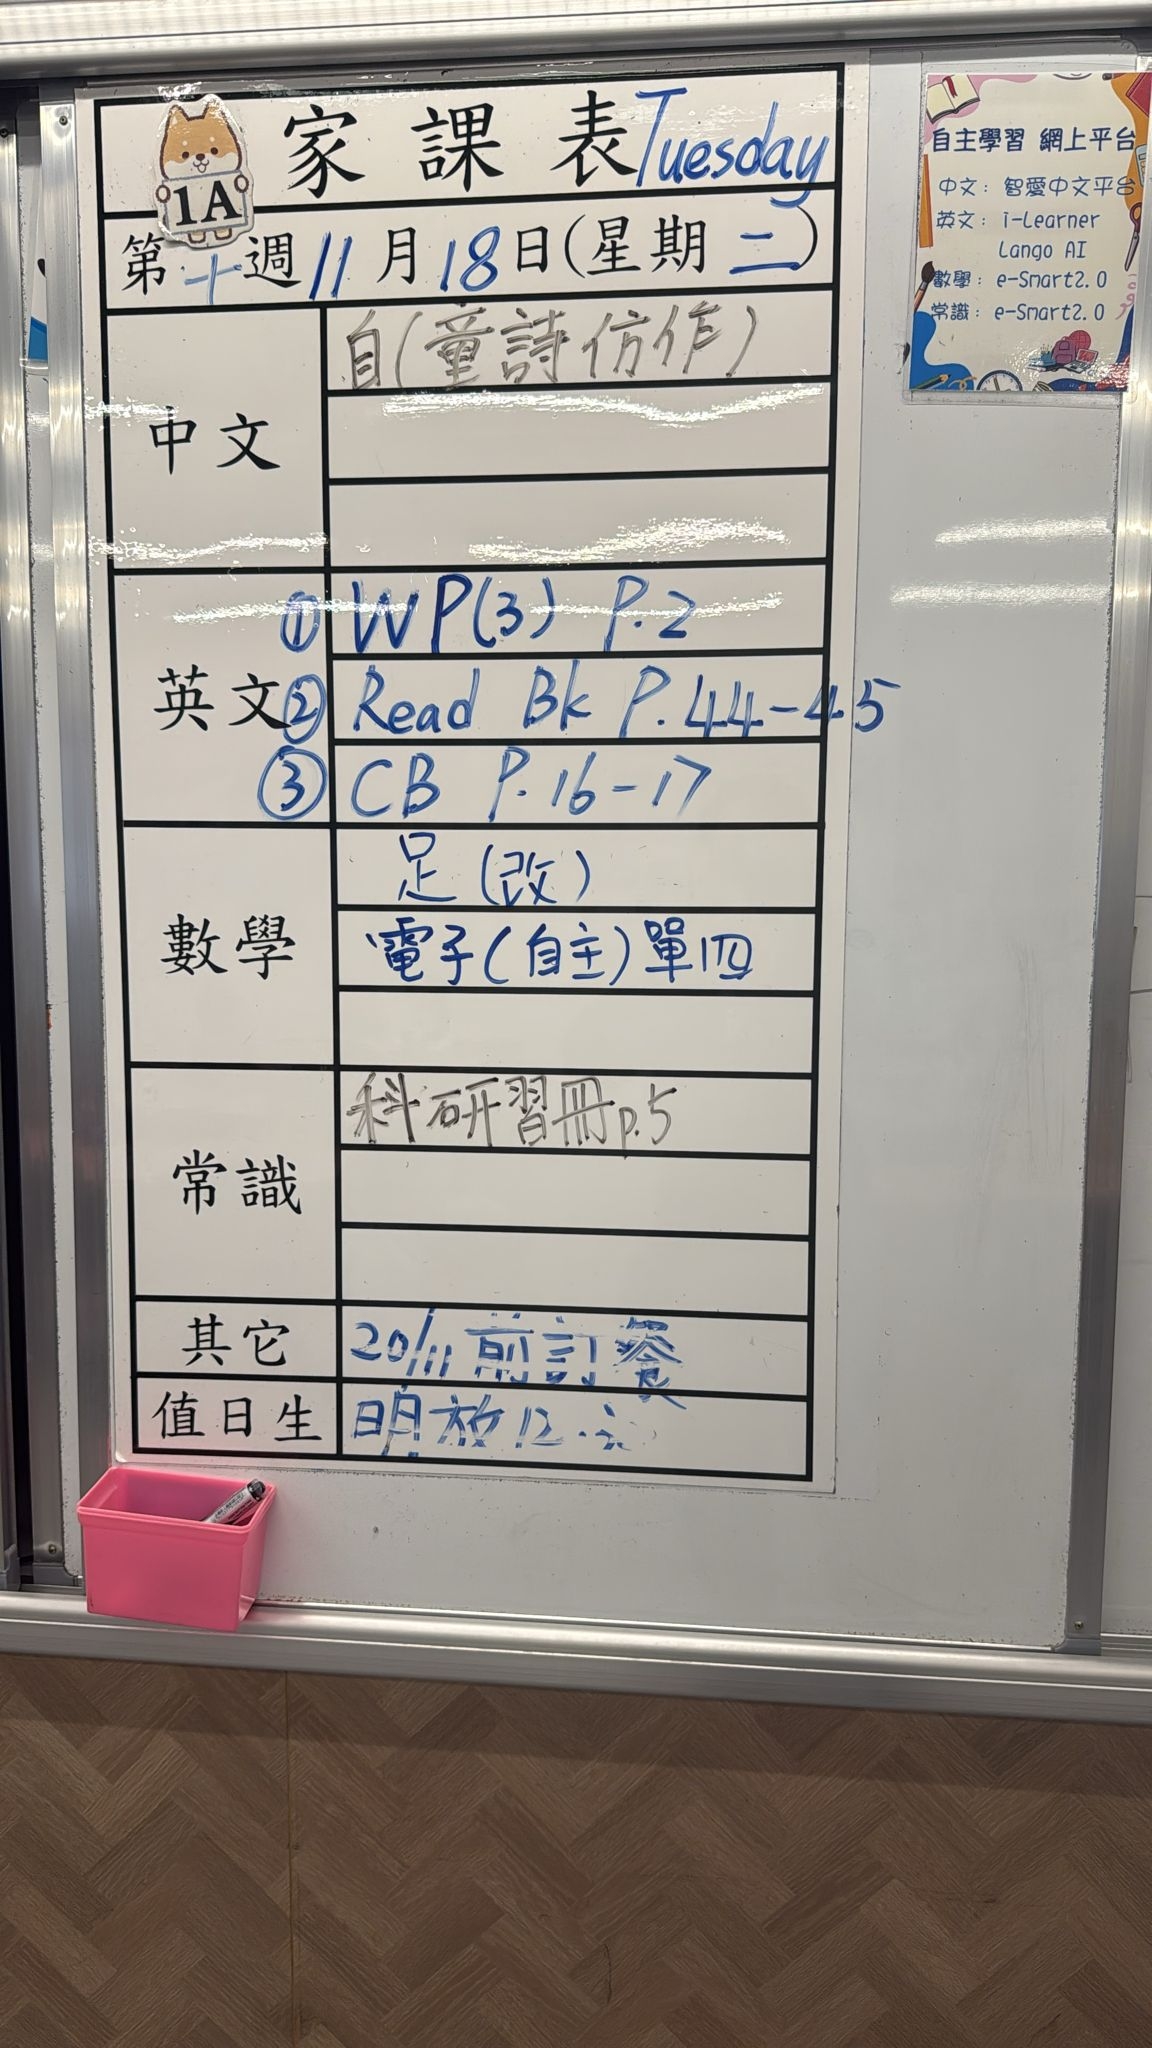 家課表 Tuesday
1A
第十週 11月18日(星期二)
中文
自(童詩仿作)
英文
① WP(3) P.2
② Read Bk P.44-45
③ CB P.16-17
數學
足(改)
電子(自主)單四
常識
科研習冊p.5
其它
20/11前訂餐
值日生
明放12
自主學習 網上平台
中文: 智愛中文平台
英文: i-Learner
Lango AI
數學: e-Smart2.0
常識: e-Smart2.0